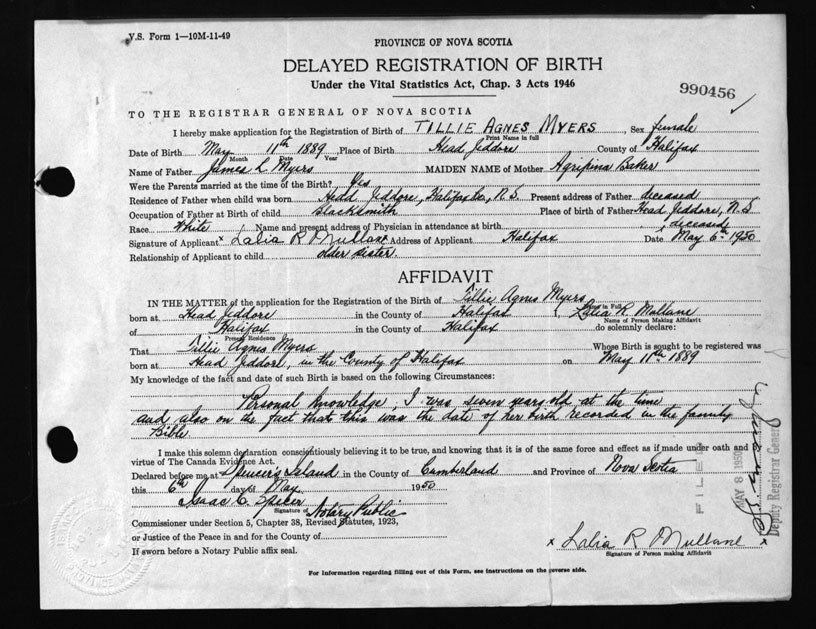 V.S. Form 1—10M-11-49
PROVINCE OF NOVA SCOTIA
DELAYED REGISTRATION OF BIRTH
Under the Vital Statistics Act, Chap. 3 Acts 1946
990456
TO THE REGISTRAR GENERAL OF NOVA SCOTIA
I hereby make application for the Registration of Birth of TILLIE AGNES MYERS, Sex female
Print Name in full
Date of Birth May 11th 1889 Place of Birth Head Jeddore County of Halifax
Month Date Year
Name of Father James L Myers MAIDEN NAME of Mother Agripina Baker
Were the Parents married at the time of the Birth? Yes
Residence of Father when child was born Head Jeddore, Halifax Co, N.S. Present address of Father deceased
Occupation of Father at Birth of child Blacksmith Place of birth of Father Head Jeddore, N.S
Race White Name and present address of Physician in attendance at birth deceased
Signature of Applicant x Lalia R Mullane Address of Applicant Halifax Date May 6th 1950
Relationship of Applicant to child older sister.
AFFIDAVIT
IN THE MATTER of the application for the Registration of Birth of Tillie Agnes Myers
Name in Full
born at Head Jeddore in the County of Halifax Lalia R. Mullane
Name of Person Making Affidavit
of Halifax in the County of Halifax do solemnly declare:
Present Residence
That Tillie Agnes Myers Whose Birth is sought to be registered was
born at Head Jeddore, in the County of Halifax on May 11th 1889
My knowledge of the fact and date of such Birth is based on the following Circumstances:
Personal knowledge, I was seven years old at the time
and also on the fact that this was the date of her birth recorded in the family
Bible
I make this solemn declaration conscientiously believing it to be true, and knowing that it is of the same force and effect as if made under oath and
virtue of The Canada Evidence Act.
Declared before me at Spencer's Island in the County of Cumberland and Province of Nova Scotia
this 6th day of May 1950
Isaac C. Spicer
Signature of Notary Public
Commissioner under Section 5, Chapter 38, Revised Statutes, 1923,
or Justice of the Peace in and for the County of
If sworn before a Notary Public affix seal.
x Lalia R Mullane x
Signature of Person making Affidavit
For Information regarding filling out of this Form, see instructions on the reverse side.
FILED
MAY 8 1950
Deputy Registrar General